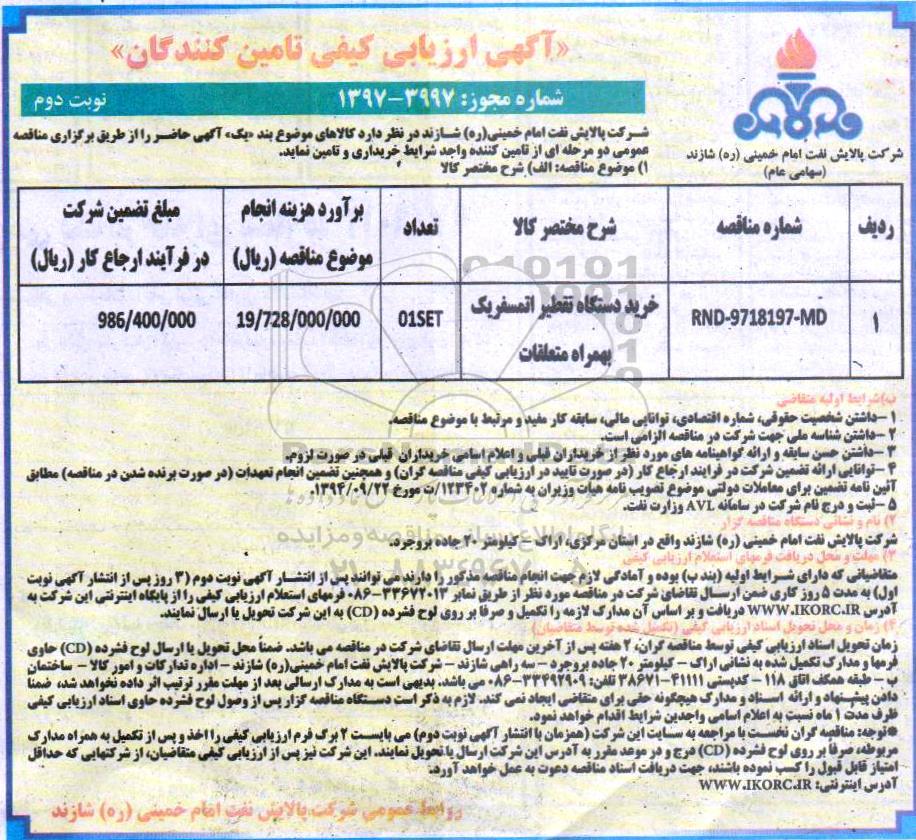 «آگهی ارزیابی کیفی تامین کنندگان»
شماره مجوز: ۳۹۹۷-۱۳۹۷
نوبت دوم
شرکت پالایش نفت امام خمینی (ره) شازند
(سهامی عام)
شرکت پالایش نفت امام خمینی(ره) شازند در نظر دارد کالاهای موضوع بند «یک» آگهی حاضر را از طریق برگزاری مناقصه
عمومی دو مرحله ای از تامین کننده واجد شرایط خریداری و تامین نماید.
۱) موضوع مناقصه: الف) شرح مختصر کالا
ردیف شماره مناقصه شرح مختصر کالا تعداد برآورد هزینه انجام موضوع مناقصه (ریال) مبلغ تضمین شرکت در فرآیند ارجاع کار (ریال)
۱ RND-9718197-MD خرید دستگاه تقطیر اتمسفریک بهمراه متعلقات 01SET 19/728/000/000 986/400/000
ب)شرایط اولیه متقاضی
۱-داشتن شخصیت حقوقی، شماره اقتصادی، توانایی مالی، سابقه کار مفید و مرتبط با موضوع مناقصه.
۲-داشتن شناسه ملی جهت شرکت در مناقصه الزامی است.
۳-داشتن حسن سابقه و ارائه گواهینامه های مورد نظر از خریداران قبلی و اعلام اسامی خریداران قبلی در صورت لزوم.
۴-توانایی ارائه تضمین شرکت در فرایند ارجاع کار (در صورت تایید در ارزیابی کیفی مناقصه گران) و همچنین تضمین انجام تعهدات (در صورت برنده شدن در مناقصه) مطابق
آئین نامه تضمین برای معاملات دولتی موضوع تصویب نامه هیات وزیران به شماره ۱۲۳۴۰۲/ت مورخ ۱۳۹۴/۰۹/۲۲.
۵-ثبت و درج نام شرکت در سامانه AVL وزارت نفت.
۲) نام و نشانی دستگاه مناقصه گزار
شرکت پالایش نفت امام خمینی (ره) شازند واقع در استان مرکزی، اراک - کیلومتر ۲۰ جاده بروجرد.
۳) مهلت و محل دریافت فرمهای استعلام ارزیابی کیفی
متقاضیانی که دارای شرایط اولیه (بند ب) بوده و آمادگی لازم جهت انجام مناقصه مذکور را دارند می توانند پس از انتشار آگهی نوبت دوم (۳ روز پس از انتشار آگهی نوبت
اول) به مدت ۵ روز کاری ضمن ارسال تقاضای شرکت در مناقصه مورد نظر از طریق نمابر ۳۳۶۷۲۰۱۳-۰۸۶ فرمهای استعلام ارزیابی کیفی را از پایگاه اینترنتی این شرکت به
آدرس WWW.IKORC.IR دریافت و بر اساس آن مدارک لازمه را تکمیل و صرفاً بر روی لوح فشرده (CD) به این شرکت تحویل یا ارسال نمایند.
۴) زمان و محل تحویل اسناد ارزیابی کیفی (تکمیل شده توسط متقاضیان)
زمان تحویل اسناد ارزیابی کیفی توسط مناقصه گران، ۲ هفته پس از آخرین مهلت ارسال تقاضای شرکت در مناقصه می باشد. ضمناً محل تحویل یا ارسال لوح فشرده (CD) حاوی
فرمها و مدارک تکمیل شده به نشانی اراک - کیلومتر ۲۰ جاده بروجرد - سه راهی شازند - شرکت پالایش نفت امام خمینی(ره) شازند - اداره تدارکات و امور کالا - ساختمان
ب - طبقه همکف اتاق ۱۱۸ - کدپستی ۴۱۱۱۱-۳۸۶۷۱ تلفن: ۳۳۴۹۲۹۰۹-۰۸۶ می باشد. بدیهی است به مدارک ارسالی بعد از مهلت مقرر ترتیب اثر داده نخواهد شد، ضمناً
دادن پیشنهاد و ارائه اسناد و مدارک هیچگونه حقی برای متقاضی ایجاد نمی کند. لازم به ذکر است دستگاه مناقصه گزار پس از وصول لوح فشرده حاوی اسناد ارزیابی کیفی
ظرف مدت ۱ ماه نسبت به اعلام اسامی واجدین شرایط اقدام خواهد نمود.
*توجه: مناقصه گران نخست با مراجعه به سایت این شرکت (همزمان با انتشار آگهی نوبت دوم) می بایست ۲ برگ فرم ارزیابی کیفی را اخذ و پس از تکمیل به همراه مدارک
مربوطه، صرفاً بر روی لوح فشرده (CD) درج و در موعد مقرر به آدرس این شرکت ارسال یا تحویل نمایند. این شرکت نیز پس از ارزیابی کیفی متقاضیان، از شرکتهایی که حداقل
امتیاز قابل قبول را کسب نموده باشند، جهت دریافت اسناد مناقصه دعوت به عمل خواهد آورد.
آدرس اینترنتی: WWW.IKORC.IR
روابط عمومی شرکت پالایش نفت امام خمینی (ره) شازند